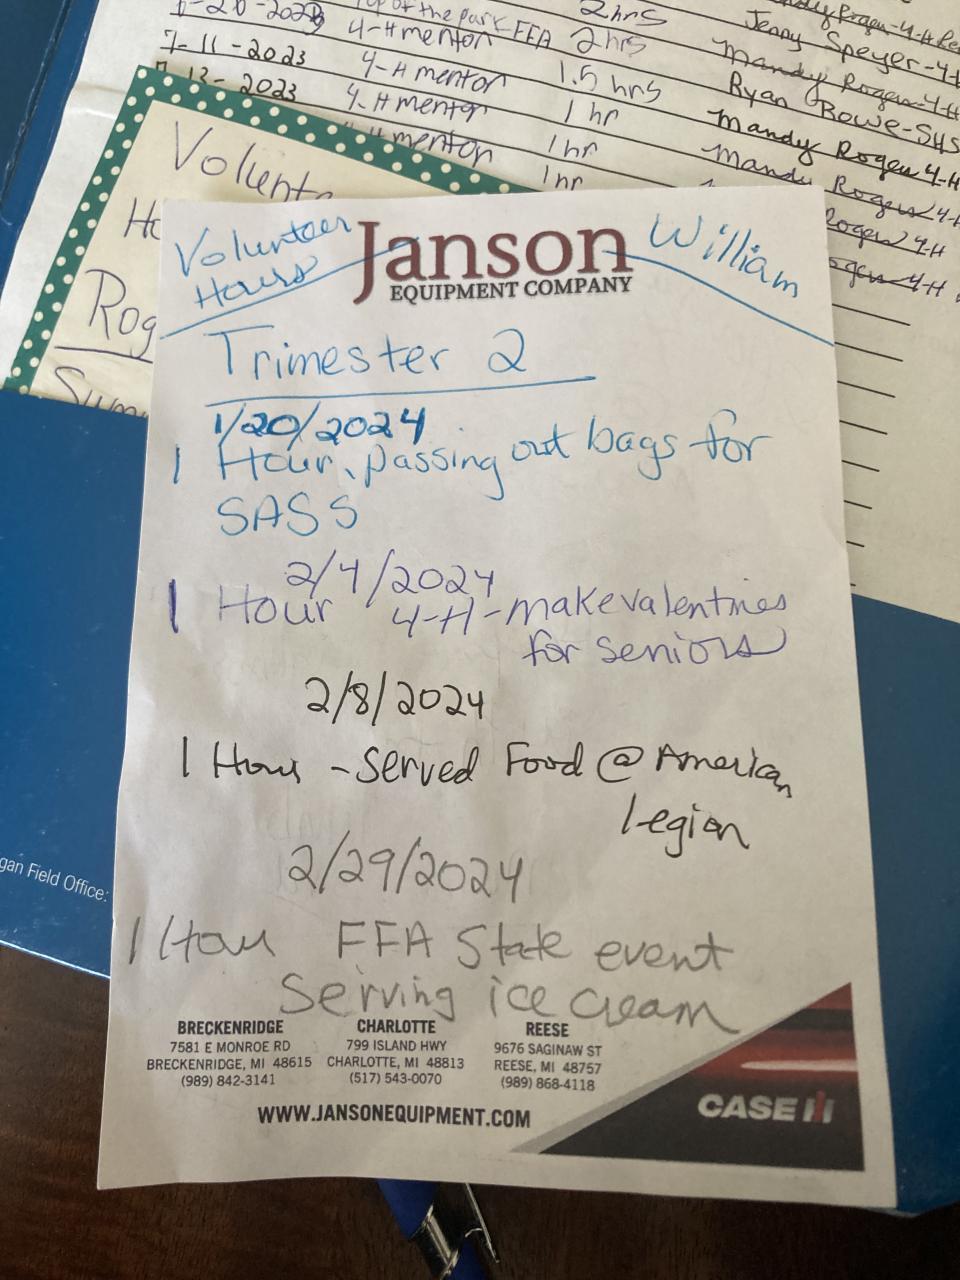 2hrs
Jenny Speyer-4-H
4-H mentor
FFA
2 hrs
Mandy Rogers-4-H
7-11-2023
4-H mentor
1.5 hrs
Ryan Rowe-SHS
2023
4-H mentor
1 hr
Mandy Rogers 4-H
mentor
1hr
Mandy Rogers 4-H
1hr
Rogers 4-H
4-H
Volunte
Ho
Rog
Sum
Volunteer
Hours
Janson
EQUIPMENT COMPANY
William
Trimester 2
1/20/2024
1 Hour, passing out bags for
SASS
2/4/2024
1 Hour 4-H-make valentines
for seniors
2/8/2024
1 Hour - Served Food @ American
Legion
2/29/2024
1 Hour FFA State event
Serving ice cream
BRECKENRIDGE
7581 E MONROE RD
BRECKENRIDGE, MI 48615
(989) 842-3141
CHARLOTTE
799 ISLAND HWY
CHARLOTTE, MI 48813
(517) 543-0070
REESE
9676 SAGINAW ST
REESE, MI 48757
(989) 868-4118
WWW.JANSONEQUIPMENT.COM
CASE IH
gan Field Office: